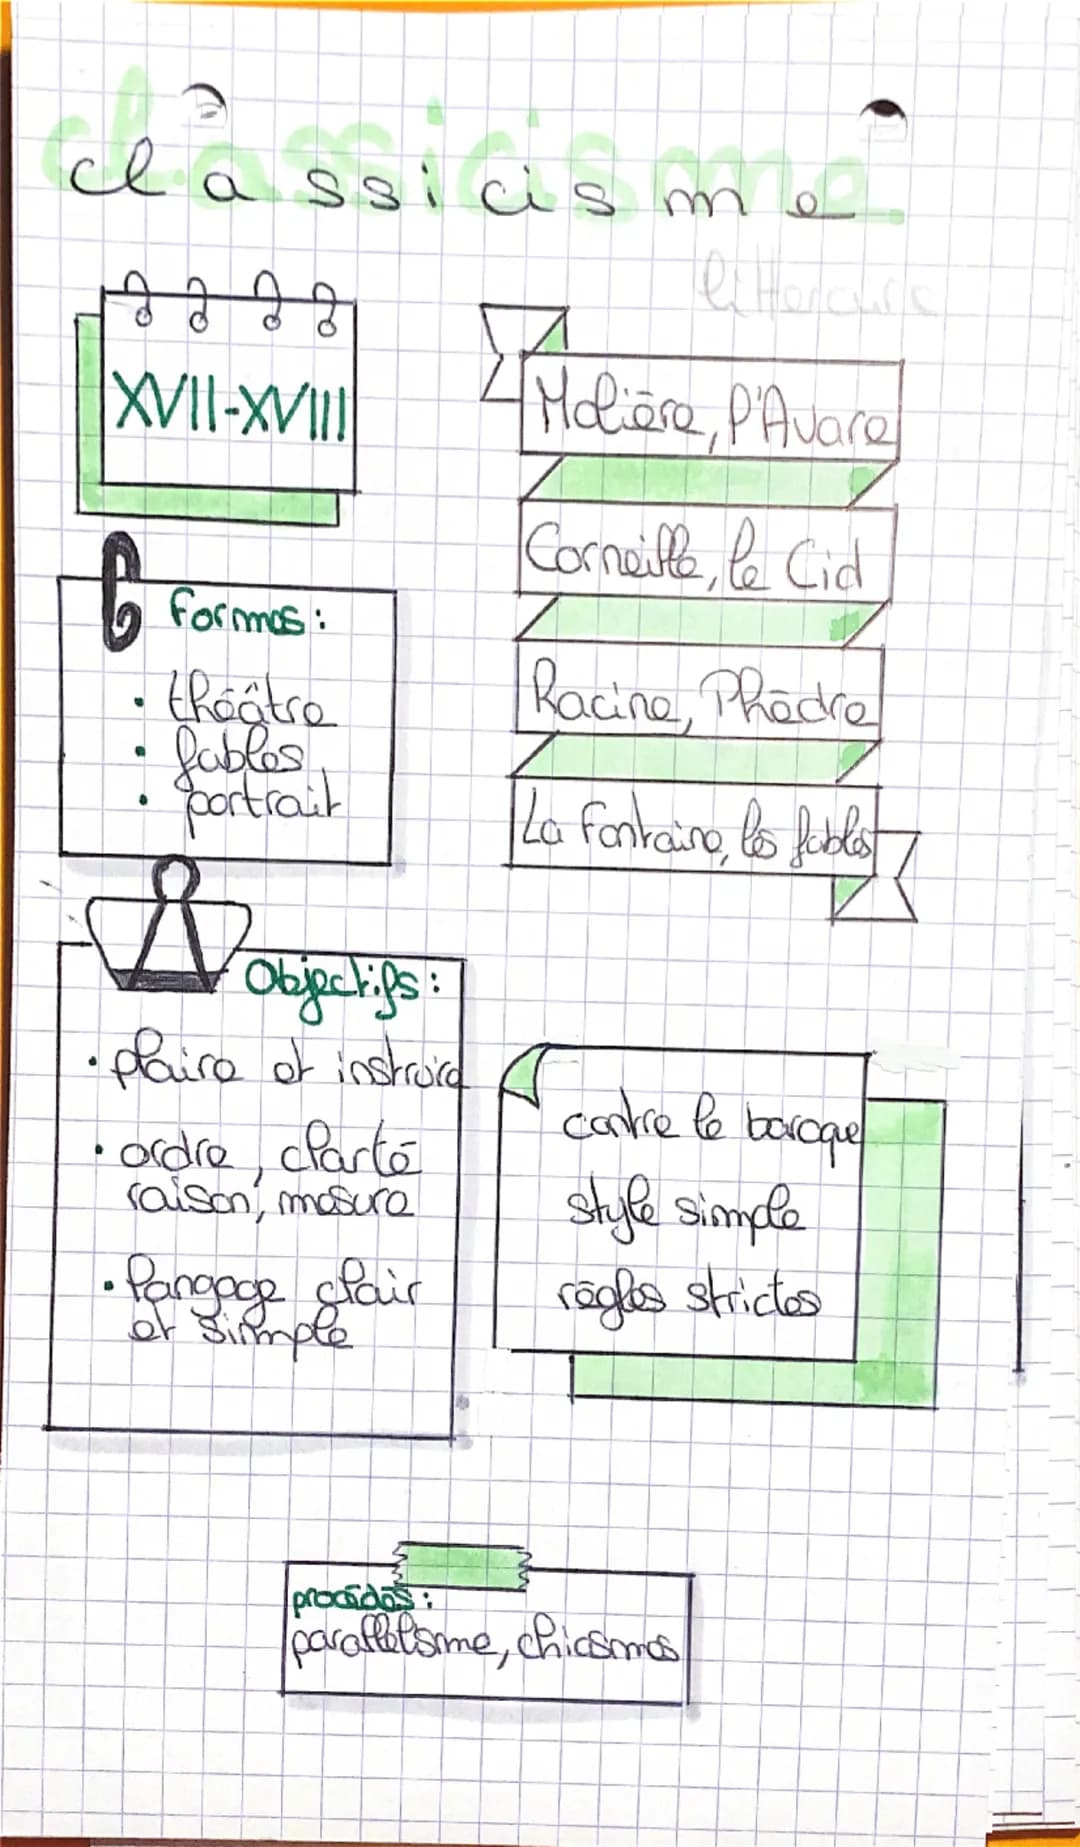 classicisme
XVII-XVIII
Formes :
• théâtre
• fables
• portrait
Molière, l'Avare
Corneille, le Cid
Racine, Phèdre
La Fontaine, les fables
Objectifs :
• plaire et instruire
• ordre, clarté
raison, mesure
• langage clair
et simple
contre le baroque
style simple
règles strictes
procédés :
parallélisme, chiasmes